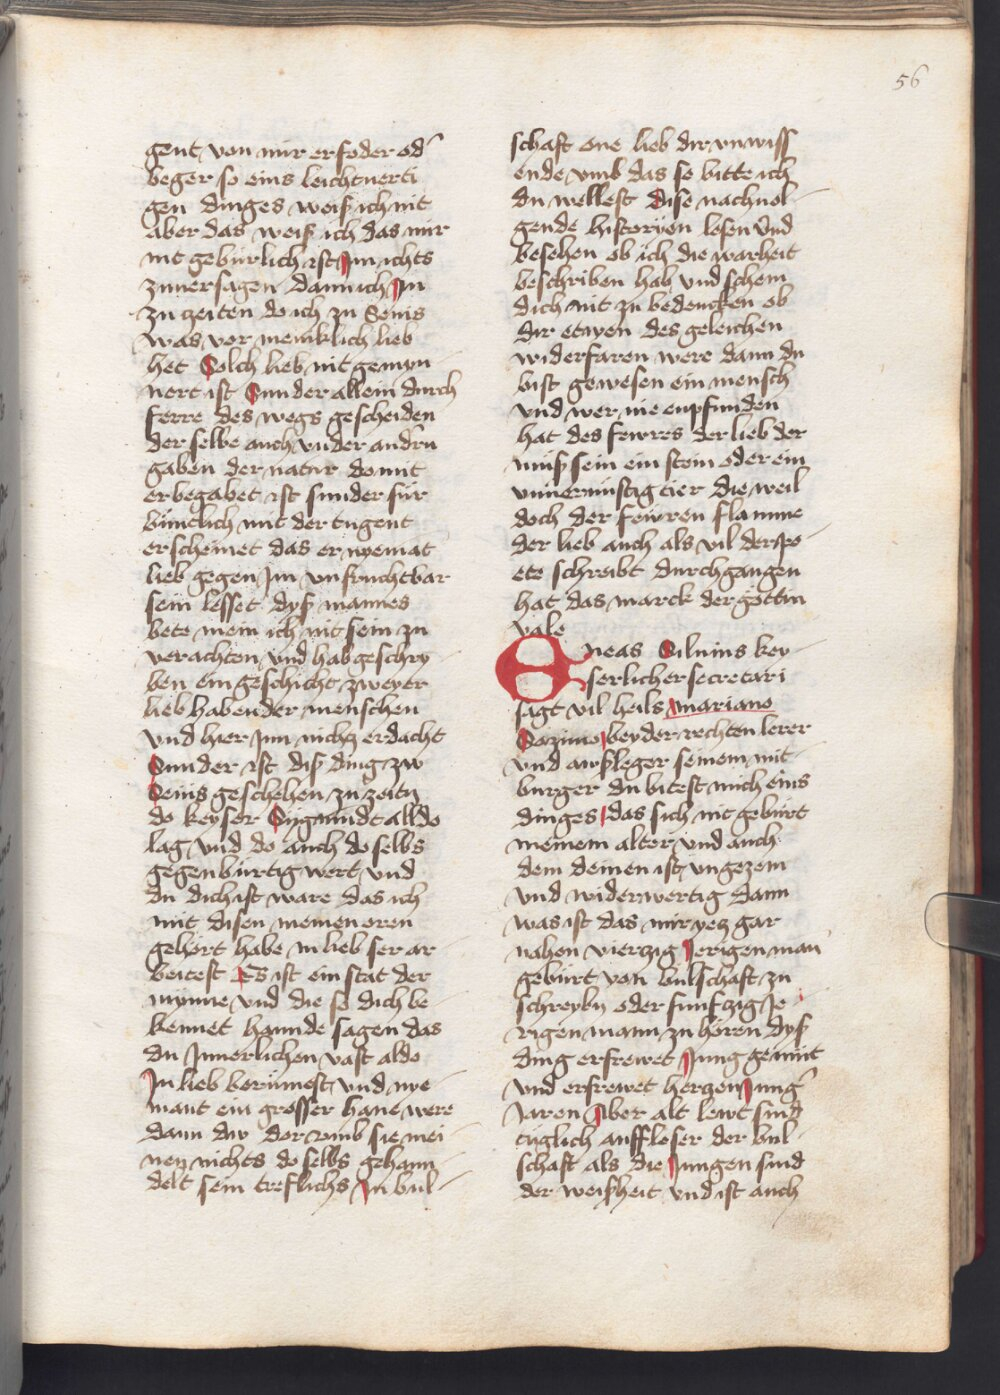 56
gent von mir erfoder od'
beger so eins leichtuerti
gen dinges weiß ich nit
aber das weiß ich das mir
nit gebürlich ist Im ichts
zuuersagen dann ich Im
zu zeiten do ich zu Senis
was vor meniklich lieb
het Solch lieb nit gemyn
nert ist Sunder allein durch
ferre des wegs gescheiden
der selbe auch vnder andrn
gaben der natur do mit
er begabet ist sunder für
büntlich mit der tugent
erscheinet das er nyemāt
lieb gegen Im vnfruchtbar
sein lesset dyß mannes
bete mein ich nit sein zu
verachten vnd hab geschry
ben ein geschicht zweyer
lieb habender menschen
vnd hier Inn nichtz erdacht
Sunder ist diß ding zw
Senis geschehen zu zeitn
do keyser Sygmundt alldo
lag vnd do auch do selbs
gegenbürtig wert vnd
du dichist ware das ich
mit disen meinen oren
gehört habe in lieb ser ar
beitest Es ist ein stat der
mynne vnd die so dich be-
kennet hannde sagen das
du Innerlichen vast aldo
In lieb berümest vnd nye-
mant ein grosser hane were
dann dw dor vmb sie mei-
nen nichts do selbs gehann-
delt sein treflichs In bul-
schaft one lieb dir vnwiss
ende vmb das se bitte ich
du wellest dise nachuol-
gende historyen lesen vnd
besehen ob ich die warheit
beschriben hab vnd schem
dich nit zu bedencken ob
dir etwen des geleichen
widerfaren were dann du
bist gewesen ein mensch
vnd wer nie enpfunden
hat des fewres der lieb der
muß sein ein stein oder ein
vnuernüstig tier die weil
doch der fewren flamme
der lieb auch als vil der po-
ete schreibt durchgangen
hat das marck der göttin
vale
Eneas Siluius key-
serlicher secretari
sagt vil heils Mariano
Sozimo beyder rechten lerer
vnd awßleger seinem mit-
burger du bitest mich eins
dinges das sich nit gebürt
meinem alter vnd auch
dem deinen ist vngezem
vnd widerwertig dann
was ist das mir yetz gar
nahen vierzig Ierigen man
gebürt von bulschaft zu
schreybn oder funfzig Je-
rigen mann zu hören dyß
ding erfrewet Jung gemüt
vnd erfrewet herzen Jung'
Jaren Aber alt lewt sind
tüglich auffloser der bul-
schaft als die Jungen sind
der weißheit vnd ist auch